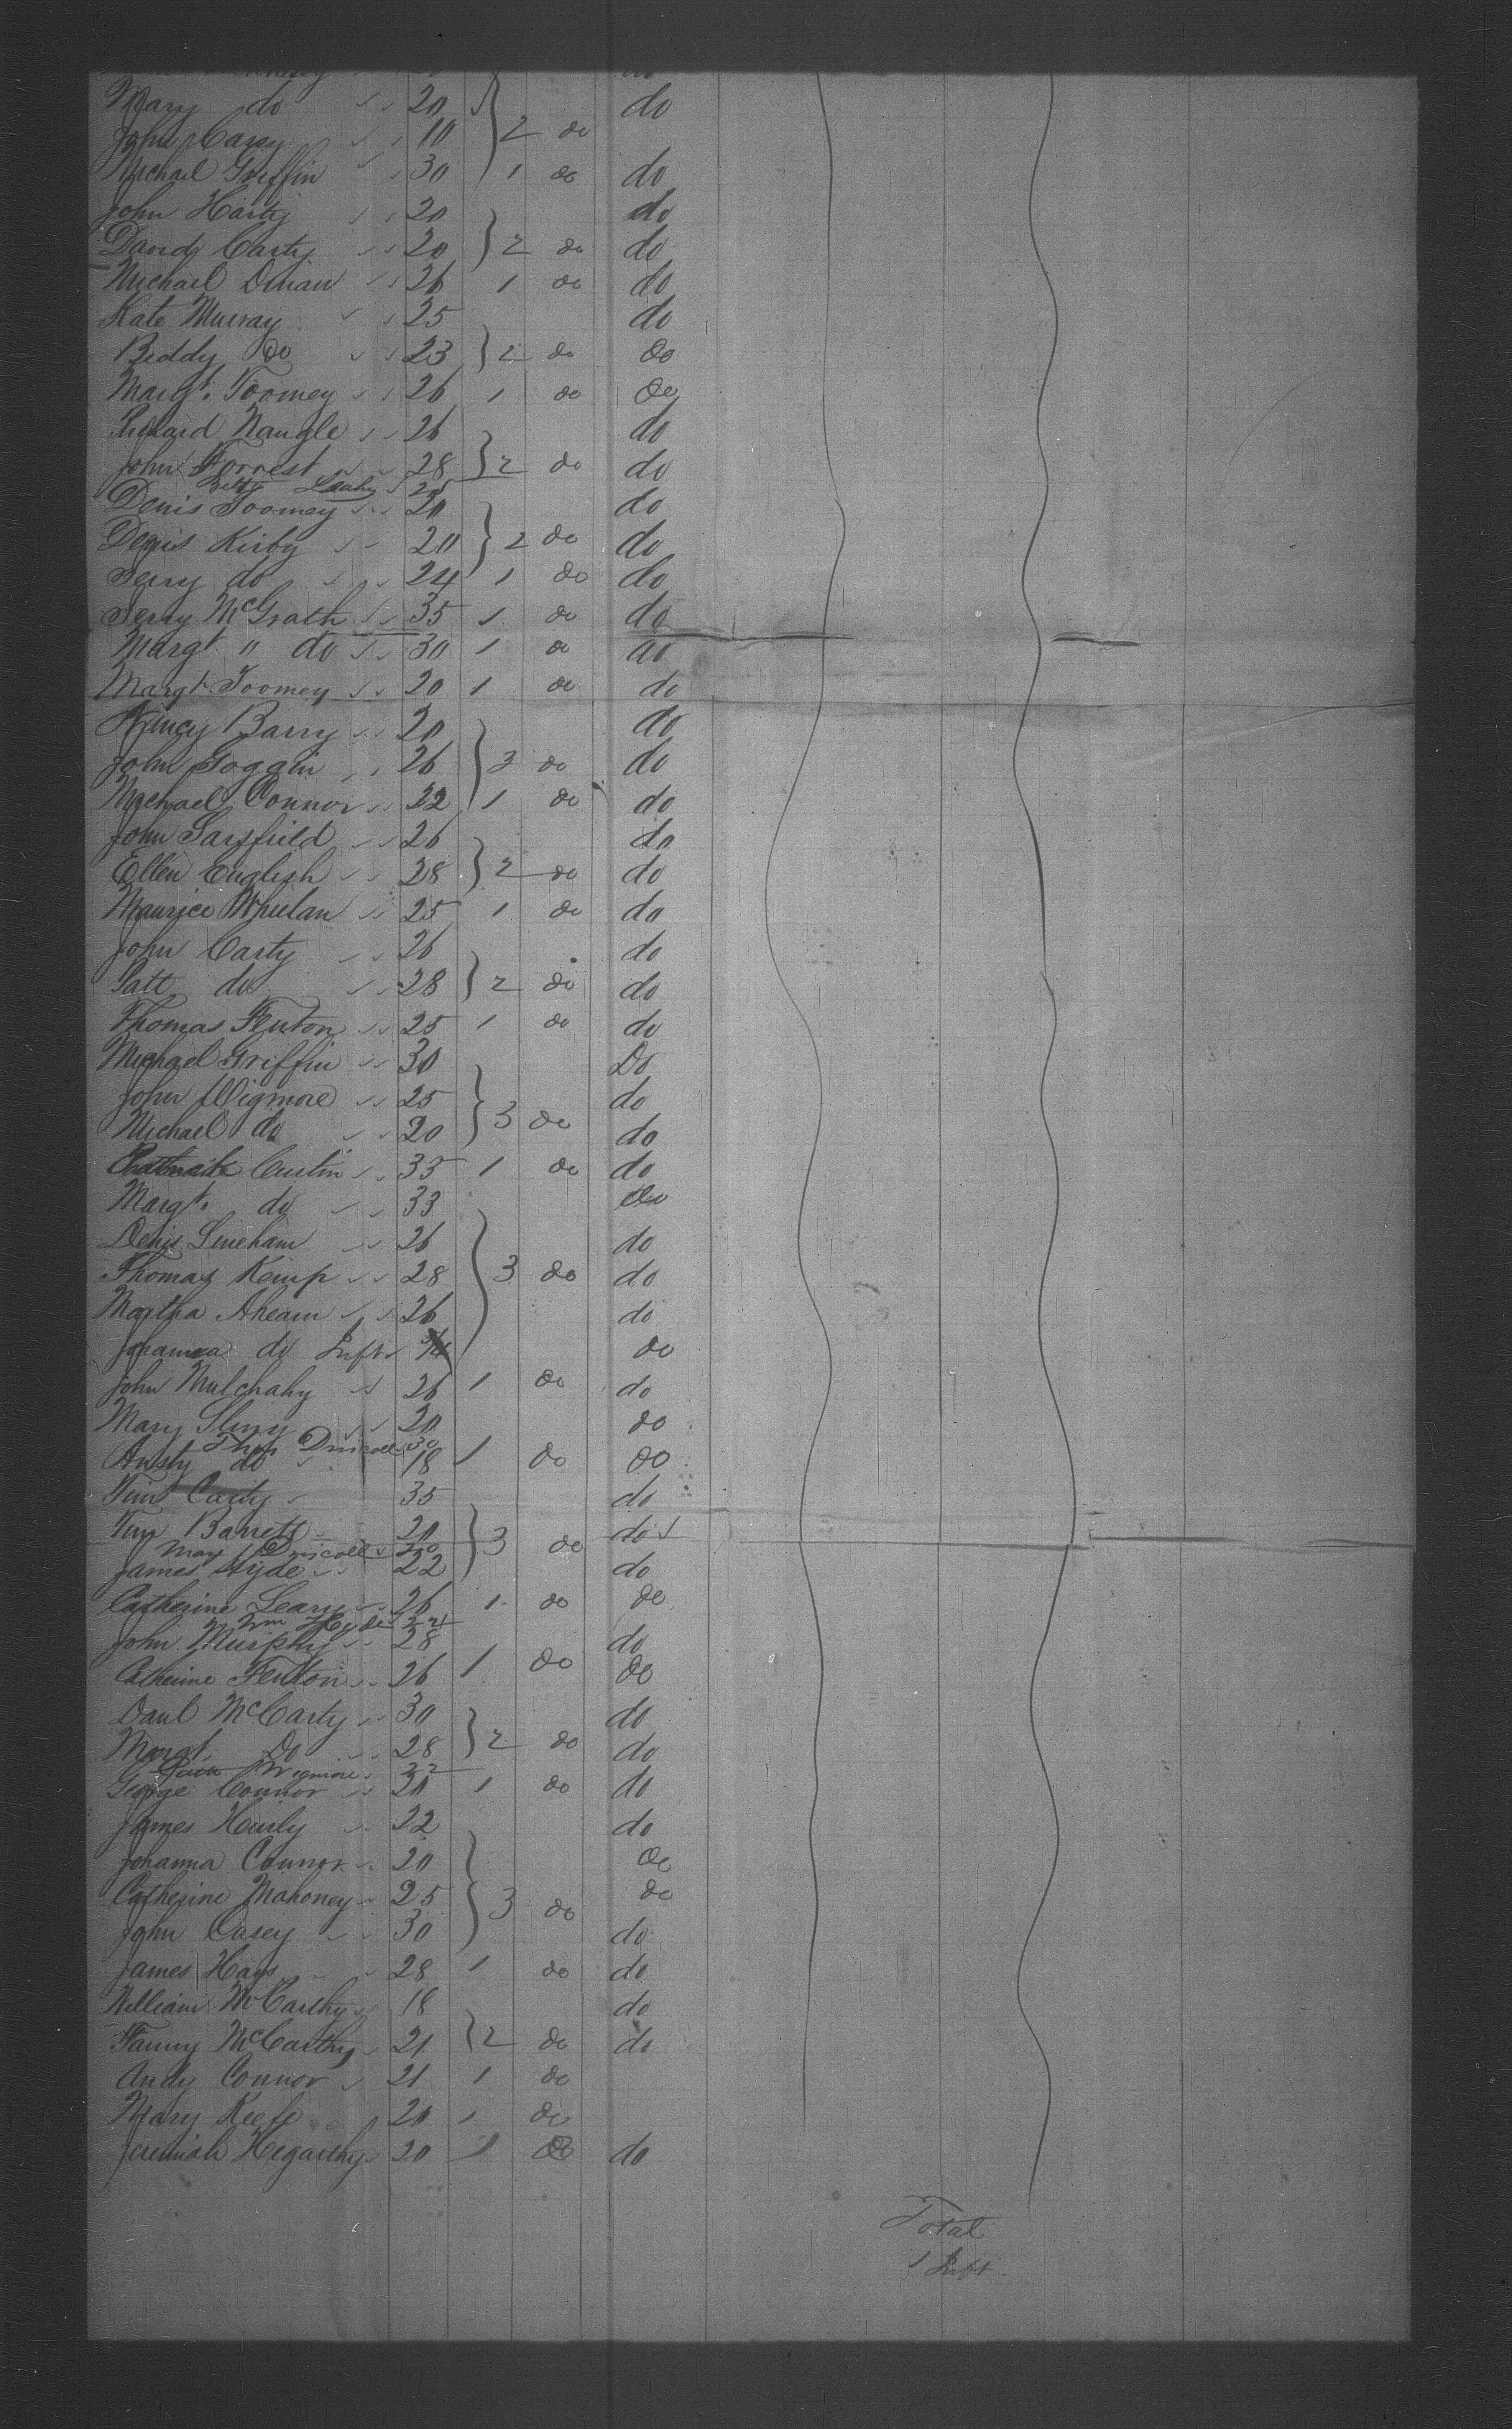 Mary do 20 do
John Carey 10 } 2 do
Michael Griffin 30 1 do do
John Harty 20 do
David Carty 20 } 2 do do
Michael Dinan 26 1 do do
Kate Murray 25 do
Biddy Do 23 } 2 do do
Margt. Toomey 26 1 do do
Richard Nangle 26 do
John Forrest 28 } 2 do do
Leahy
Denis Toomey 20 do
Denis Kirby 20 } 2 do do
Jerry do 24 1 do do
Jerry McGrath 35 1 do do
Margt " do 30 1 do do
Margt Toomey 20 1 do do
Nancy Barry 20 do
John Goggin 26 } 3 do do
Michael Connor 22 1 do do
John Sarsfield 26 do
Ellen English 28 } 2 do do
Maurice Whelan 25 1 do do
John Carty 26 do
Patt do 28 } 2 do do
Thomas Fenton 25 1 do do
Michael Griffin 30 Do
John Wigmore 25 do
Michael do 20 } 3 do do
Curtin 35 1 do do
Margt. do 33 do
Denis Lineham 26 do
Thomas Kemp 28 } 3 do do
Martha Ahearn 26 do
Johanna do Inft do
John Mulchahy 26 1 do do
Mary 20 do
Thos Driscoll 30
do 18 1 do do
Tim Carty 35 do
Tim Barrett 20 } 3 do do
Mary Driscoll 20
James Hyde 22 do
Catherine Leary 26 1 do do
Wm Hyde
John Murphy 28 do
Catherine Fenton 26 1 do do
Danl McCarty 30 do
Margt Do 28 } 2 do do
Wigmore 22
George Connor 20 1 do do
James Hurly 22 do
Johanna Connor 20 do
Catherine Mahoney 25 } 3 do do
John Casey 30 do
James Hays 28 1 do do
William McCarthy 18 do
Fanny McCarthy 21 } 2 do do
Andy Connor 21 1 do
Mary Keefe 20 1 do
Jeremiah Hegarthy 20 1 do do
Total
1 Inft.